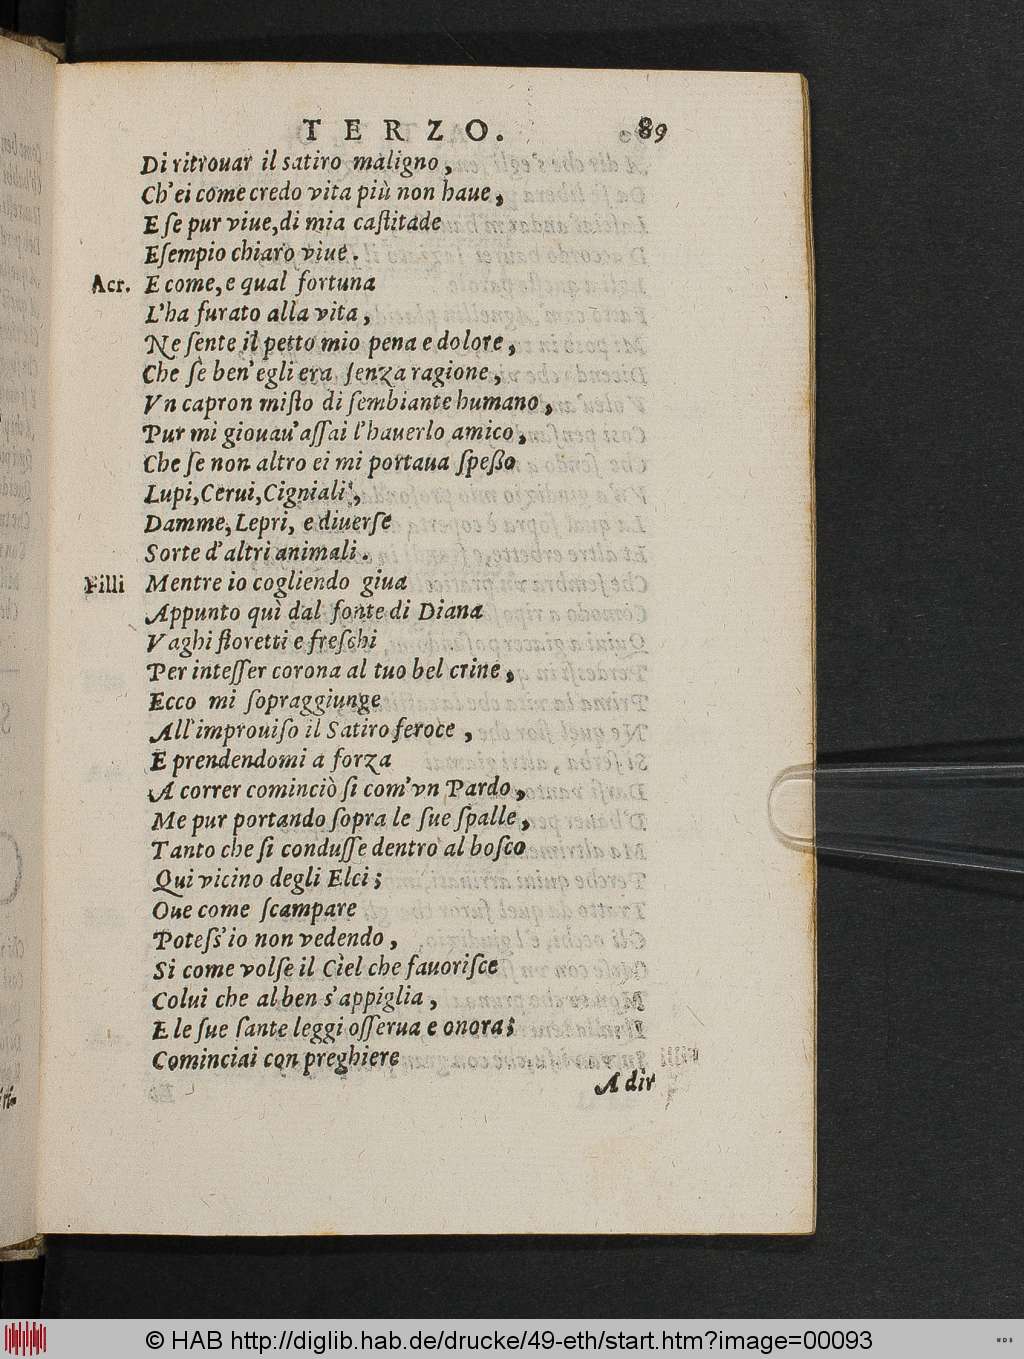 TERZO. 89
Di ritrouar il satiro maligno,
Ch'ei come credo vita più non haue,
E ſe pur viue, di mia caſtitade
Eſempio chiaro viue.
Acr. E come, e qual fortuna
L'ha furato alla vita,
Ne ſente il petto mio pena e dolore,
Che ſe ben'egli era ſenza ragione,
Vn capron miſto di ſembiante humano,
Pur mi giouau'aſſai l'hauerlo amico,
Che ſe non altro ei mi portaua ſpeßo
Lupi, Cerui, Cigniali,
Damme, Lepri, e diuerſe
Sorte d'altri animali.
Filli Mentre io cogliendo giua
Appunto quì dal fonte di Diana
Vaghi fioretti e freſchi
Per inteſſer corona al tuo bel crine,
Ecco mi ſopraggiunge
All'improuiſo il Satiro feroce,
E prendendomi a forza
A correr cominciò ſi com'vn Pardo,
Me pur portando ſopra le ſue ſpalle,
Tanto che ſi conduſſe dentro al boſco
Qui vicino degli Elci;
Oue come ſcampare
Poteſs'io non vedendo,
Si come volſe il Ciel che fauoriſce
Colui che al ben s'appiglia,
E le ſue ſante leggi oſſerua e onora;
Cominciai con preghiere
A dir
© HAB http://diglib.hab.de/drucke/49-eth/start.htm?image=00093